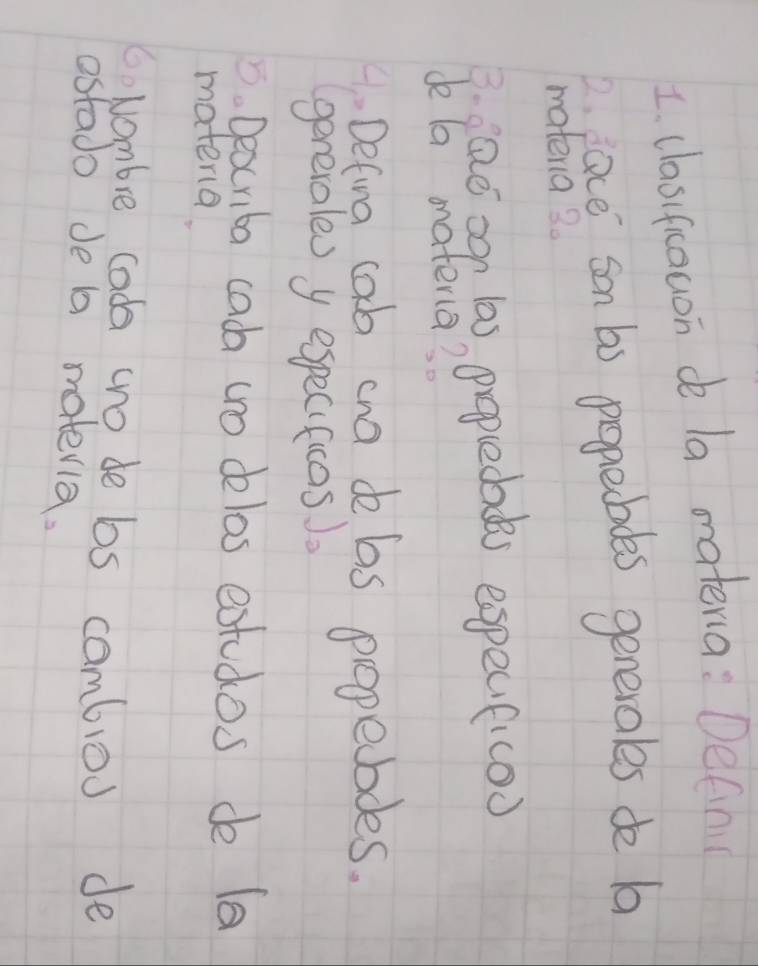 1. Clasificación de la materia: Definir
2. ¿Qué son las propiedades generales de la
materia?.
3. ¿Qué son las propiedades específicas
de la materia?.
4. Defina cada una de las propiedades.
(generales y específicas).
5. Describa cada uno de los estudos de la
materia.
6. Nombre cada uno de los cambios de
estado de la materia.